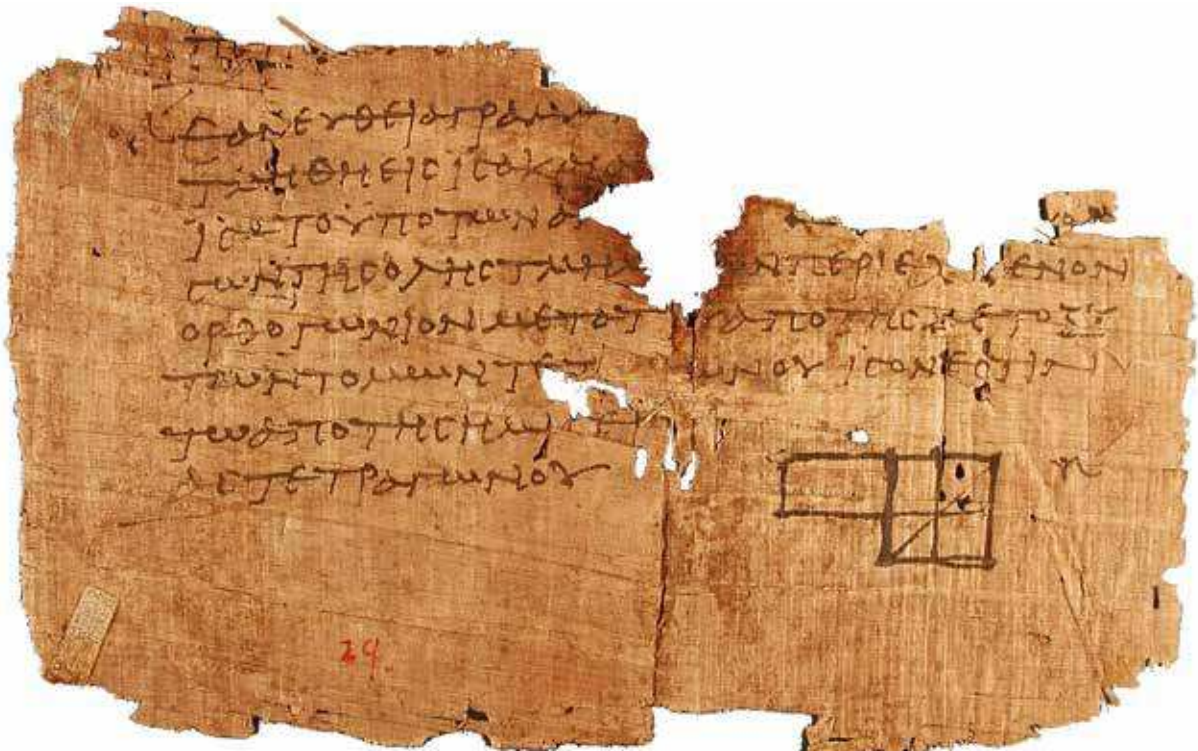 ΕΑΝΕΥΘΕΙΑΓΡΑΜΜ
ΤΜΗΘΗΕΙΣΙΣΑΚΑΙΑ
ΙΣΑΤΟΥΠΟΤΩΝΑ
ΓΩΝΤΗΣΟΛΗΣΤΜΗΜ ΩΝΠΕΡΙΕΧ ΜΕΝΟΝ
ΟΡΘΟΓΩΝΙΟΝΜΕΤΑΤ ΑΠΟΤΗΣΜΕΤΟΞΥ
ΤΩΝΤΟΜΩΝΤΕΤ ΩΝΟΥΙΣΟΝΕΣΤΙΝ
ΤΩΑΠΟΤΗΣΗΜΙΣ
ΑΣΤΕΤΡΑΓΩΝΟΥ
29